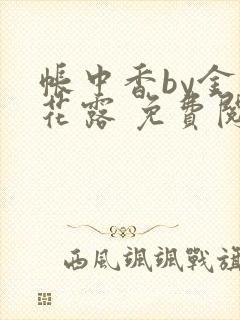 帳中香by金
花露 免費閱
西風颯颯戰旗